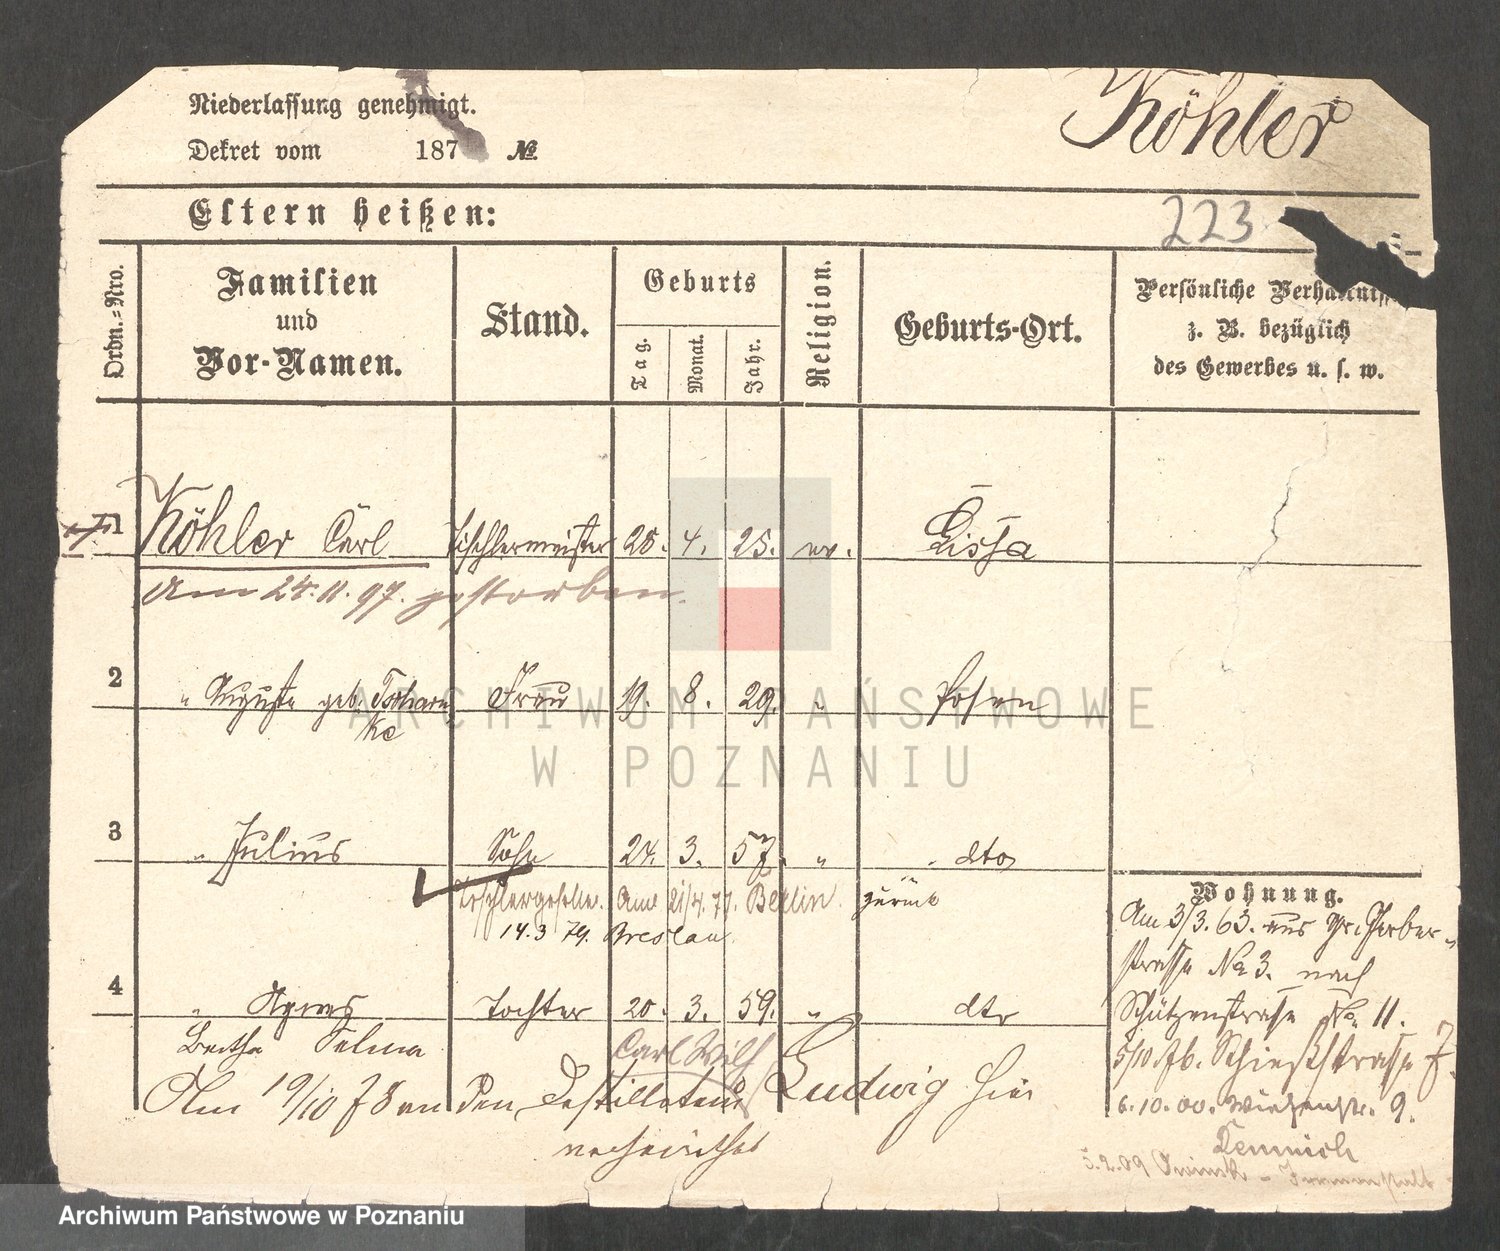 Niederlassung genehmigt.
Köhler
Dekret vom 187 №
Eltern heißen:
223
Ordn.-Nro.
Familien
und
Vor-Namen.
Stand.
Geburts
Tag.
Monat.
Jahr.
Religion.
Geburts-Ort.
Persönliche
z. B. bezüglich
des Gewerbes u. s. w.
1 Köhler Carl Tischlermeister 25. 4. 25. ev. Lissa
Am 24.11.97. gestorben.
2 " Auguste geb. Tscharn Frau 19. 8. 29. " Posen
ke
3 " Julius Sohn 24. 3. 57. " dto
Tischlergeselle. Am 21/4. 77. Berlin. zurück
14.3 79. Breslau.
4 " Agnes Tochter 20. 3. 59. " dto
Bertha Selma
Carl Wilh
Am 19/10 78 an den Destillateur Ludwig hier
verheirathet
Wohnung.
Am 3/3. 63. aus Gr. Gerber-
strasse No 3. nach
Schützenstrasse No. 11.
5/10. 76. Schießstrasse 7.
6.10.00. Wiesenstr. 9.
5.2.09 Owinsk - Irrenanstalt
ARCHIWUM PAŃSTWOWE
W POZNANIU
Archiwum Państwowe w Poznaniu